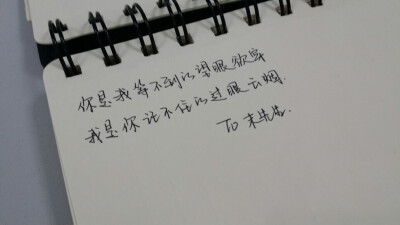 你是我等不到的望眼欲穿
我是你记不住的过眼云烟.
To 未先生.